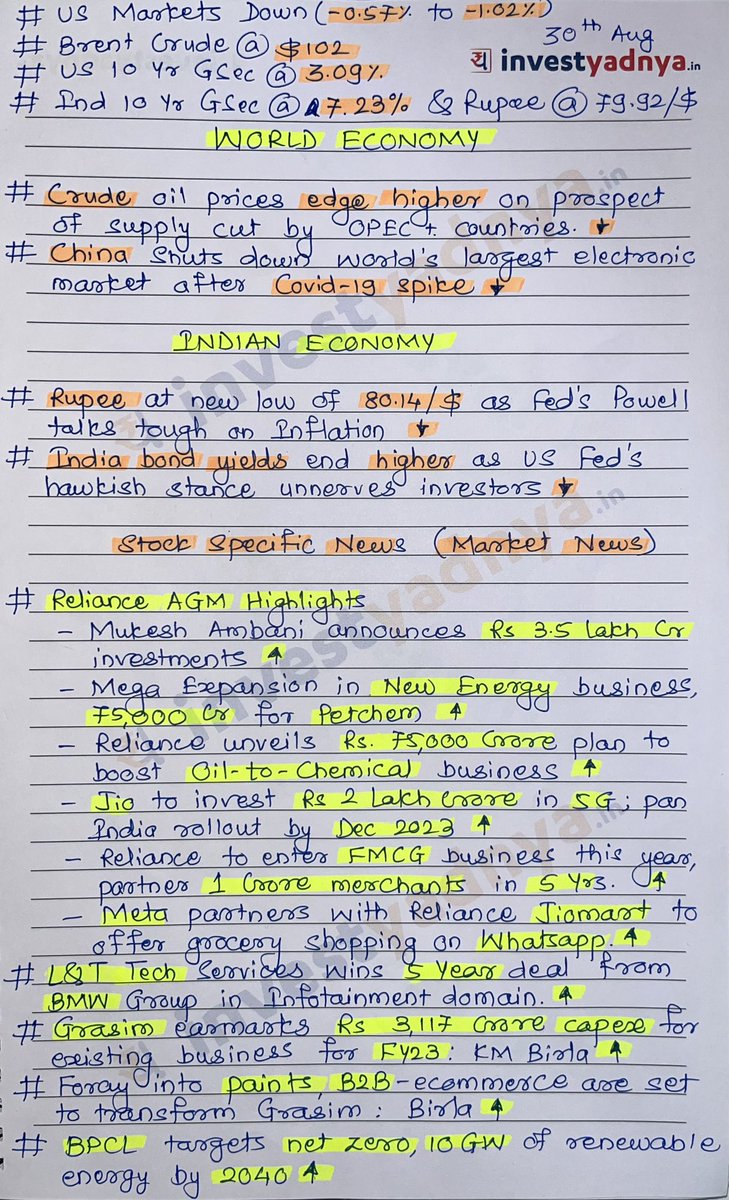 # US Markets Down (-0.57% to -1.02%)
30th Aug
# Brent Crude @ $102
या investyadnya.in
# US 10 Yr GSec @ 3.09%
# Ind 10 Yr GSec @ 7.23% & Rupee @ 79.92/$
WORLD ECONOMY
# Crude oil prices edge higher on prospect
of supply cut by OPEC+ countries. ↓
# China shuts down world's largest electronic
market after Covid-19 spike ↓
INDIAN ECONOMY
# Rupee at new low of 80.14/$ as Fed's Powell
talks tough on Inflation ↓
# India bond yields end higher as US Fed's
hawkish stance unnerves investors ↓
Stock Specific News (Market News)
# Reliance AGM Highlights
- Mukesh Ambani announces Rs 3.5 lakh Cr
investments ↑
- Mega Expansion in New Energy business,
75,000 Cr for Petchem ↑
- Reliance unveils Rs. 75,000 Crore plan to
boost Oil-to-Chemical business ↑
- Jio to invest Rs 2 Lakh Crore in 5G; pan
India rollout by Dec 2023 ↑
- Reliance to enter FMCG business this year,
partner 1 Crore merchants in 5 Yrs. ↑
- Meta partners with Reliance Jiomart to
offer grocery shopping on Whatsapp. ↑
# L&T Tech Services wins 5 Year deal from
BMW Group in Infotainment domain. ↑
# Grasim earmarks Rs 3,117 Crore capex for
existing business for FY23: KM Birla ↑
# Foray into paints, B2B-ecommerce are set
to transform Grasim: Birla ↑
# BPCL targets net zero, 10 GW of renewable
energy by 2040 ↑